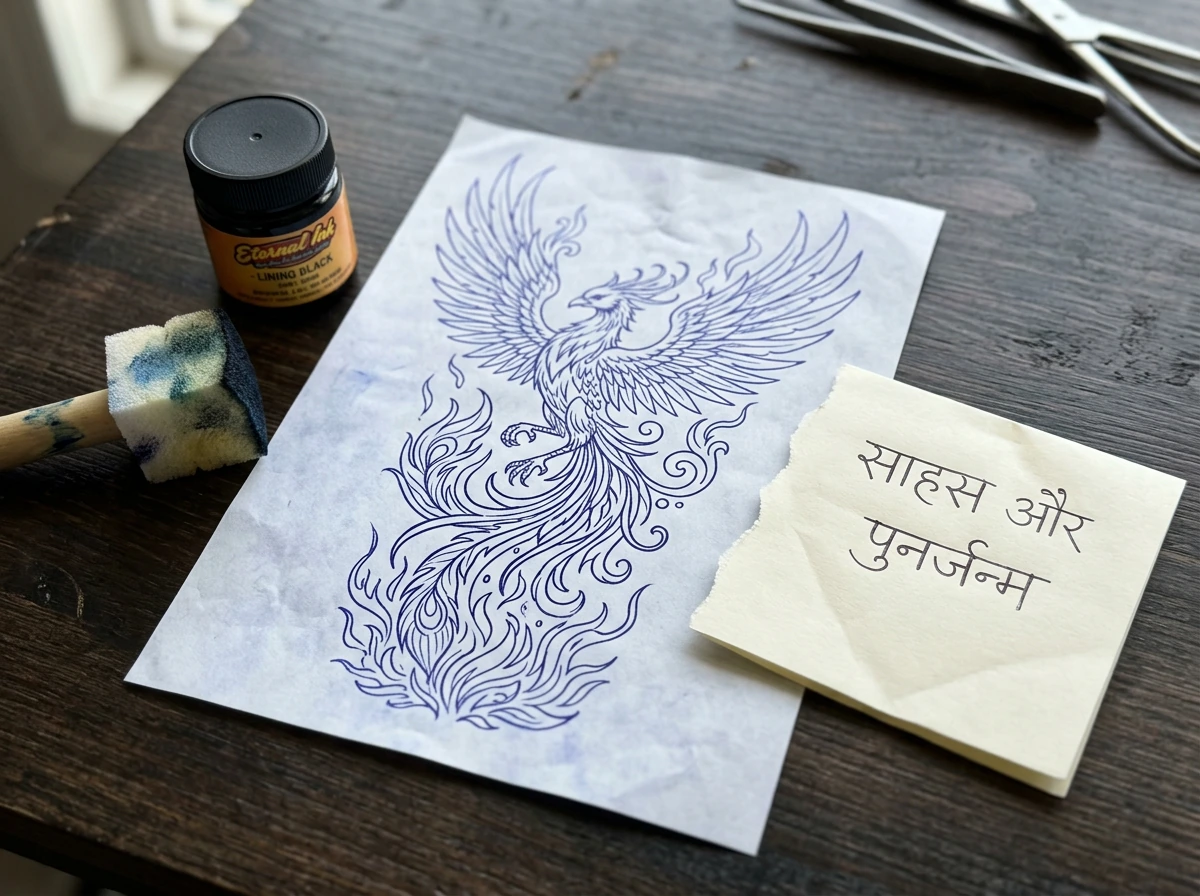 Eternal Ink
LINING BLACK
साहस और
पुनर्जन्म